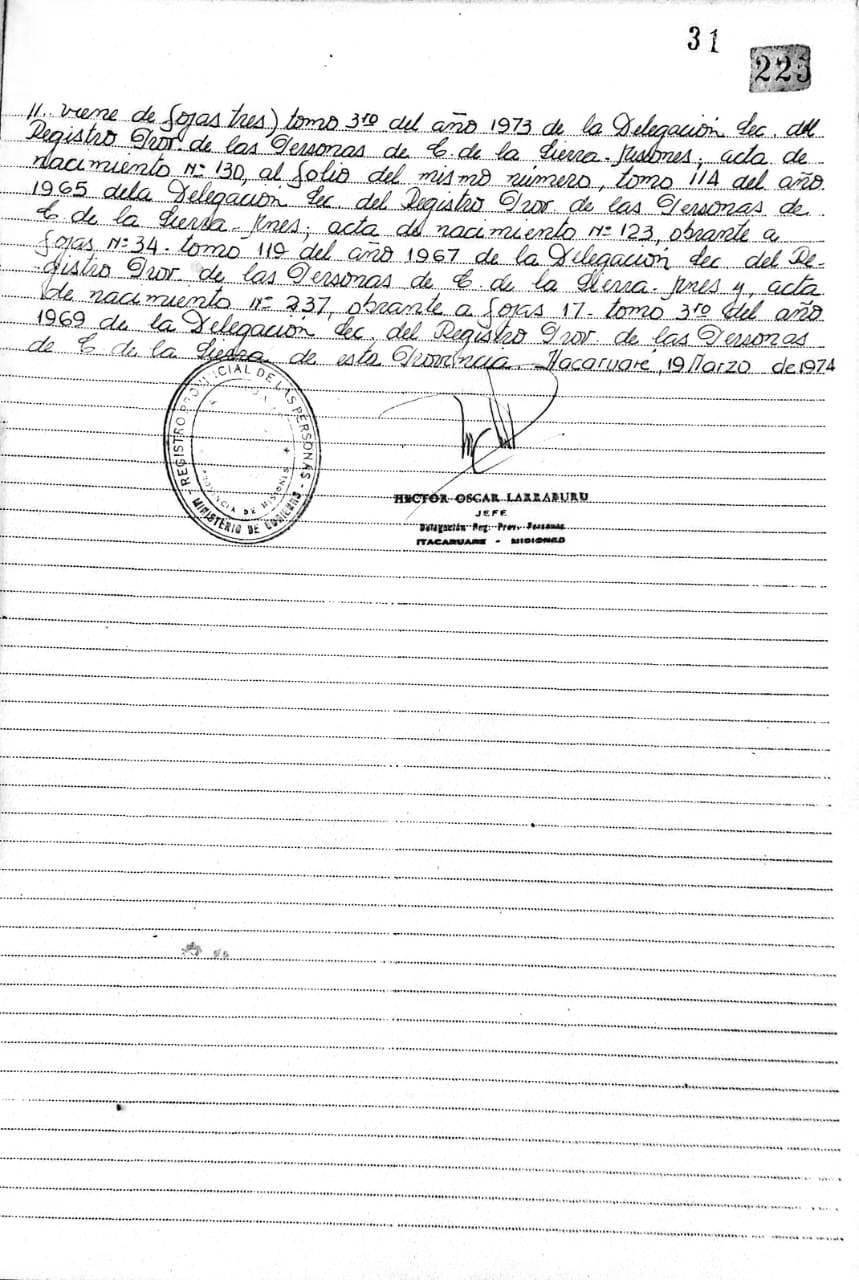 31
225
//. viene de fojas tres) tomo 3ro del año 1973 de la Delegación Sec. del
Registro Prov. de las Personas de C. de la Sierra - Misiones; acta de
nacimiento Nº 130, al folio del mismo número, tomo 114 del año
1965 dela Delegación Sec. del Registro Prov. de las Personas de
C. de la Sierra - Mnes; acta de nacimiento Nº 123, obrante a
fojas Nº 34 - tomo 119 del año 1967 de la Delegación Sec. del Re-
-gistro Prov. de las Personas de C. de la Sierra - Mnes y, acta
de nacimiento Nº 237, obrante a fojas 17 - tomo 3ro del año
1969 de la Delegación Sec. del Registro Prov. de las Personas
de C. de la Sierra de esta Provincia - Itacaruaré, 19 Marzo de 1974
REGISTRO PROVINCIAL DE LAS PERSONAS
PROVINCIA DE MISIONES
MINISTERIO DE GOBIERNO
HECTOR OSCAR LARRABURU
JEFE
Delegación Reg. Prov. Personas
ITACARUARE - MISIONES